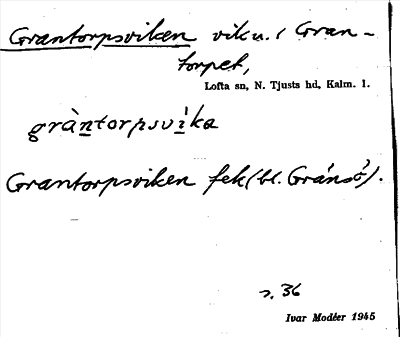 Grantorpsviken vik u. / Gran-
torpet,
Lofta sn, N. Tjusts hd, Kalm. l.
gràntorpsvìka
Grantorpsviken fek (bl. Gránsö).
s. 36
Ivar Modéer 1945